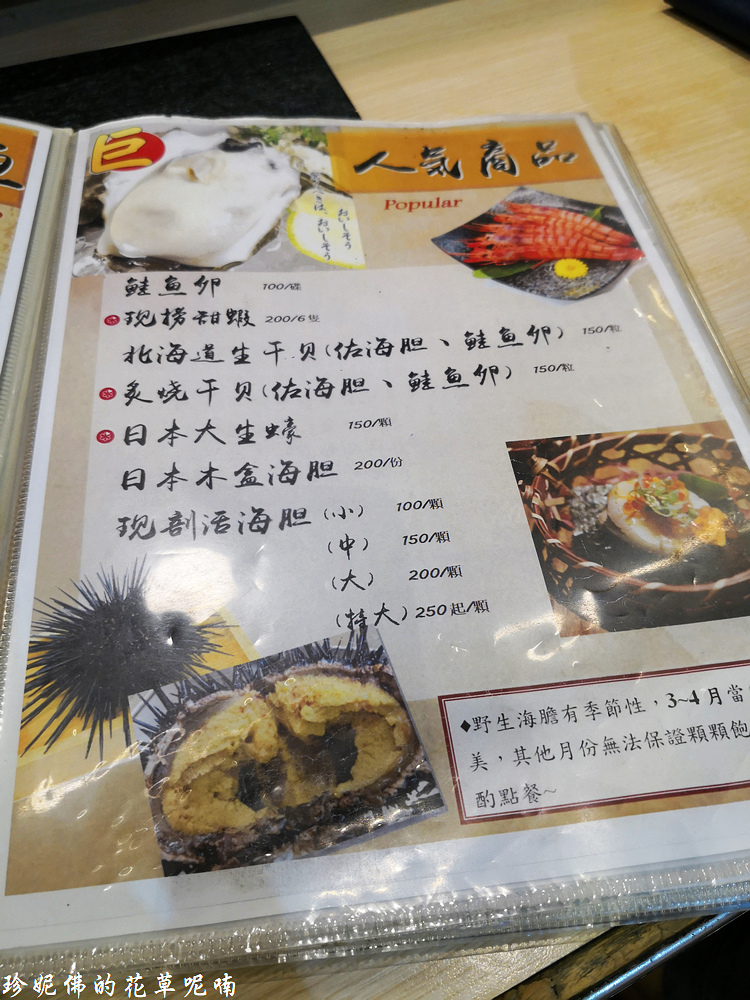 巨
人氣商品
Popular
おいしそう
鮭魚卵 100/碟
現撈甜蝦 200/6隻
北海道生干贝(佐海胆、鮭魚卵) 150/粒
炙烧干贝(佐海胆、鮭魚卵) 150/粒
日本大生蠔 150/顆
日本木盒海胆 200/份
现剖活海胆(小) 100/顆
(中) 150/顆
(大) 200/顆
(特大) 250起/顆
◆野生海膽有季節性，3~4月當
美，其他月份無法保證顆顆飽
酌點餐~
珍妮佛的花草呢喃